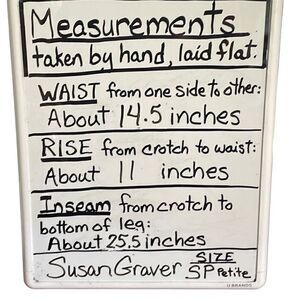 Measurements
taken by hand, laid flat.
WAIST from one side to other:
About 14.5 inches
RISE from crotch to waist:
About 11 inches
Inseam from crotch to
bottom of leg:
About 25.5 inches
Susan Graver SIZE
SP Petite
U BRANDS